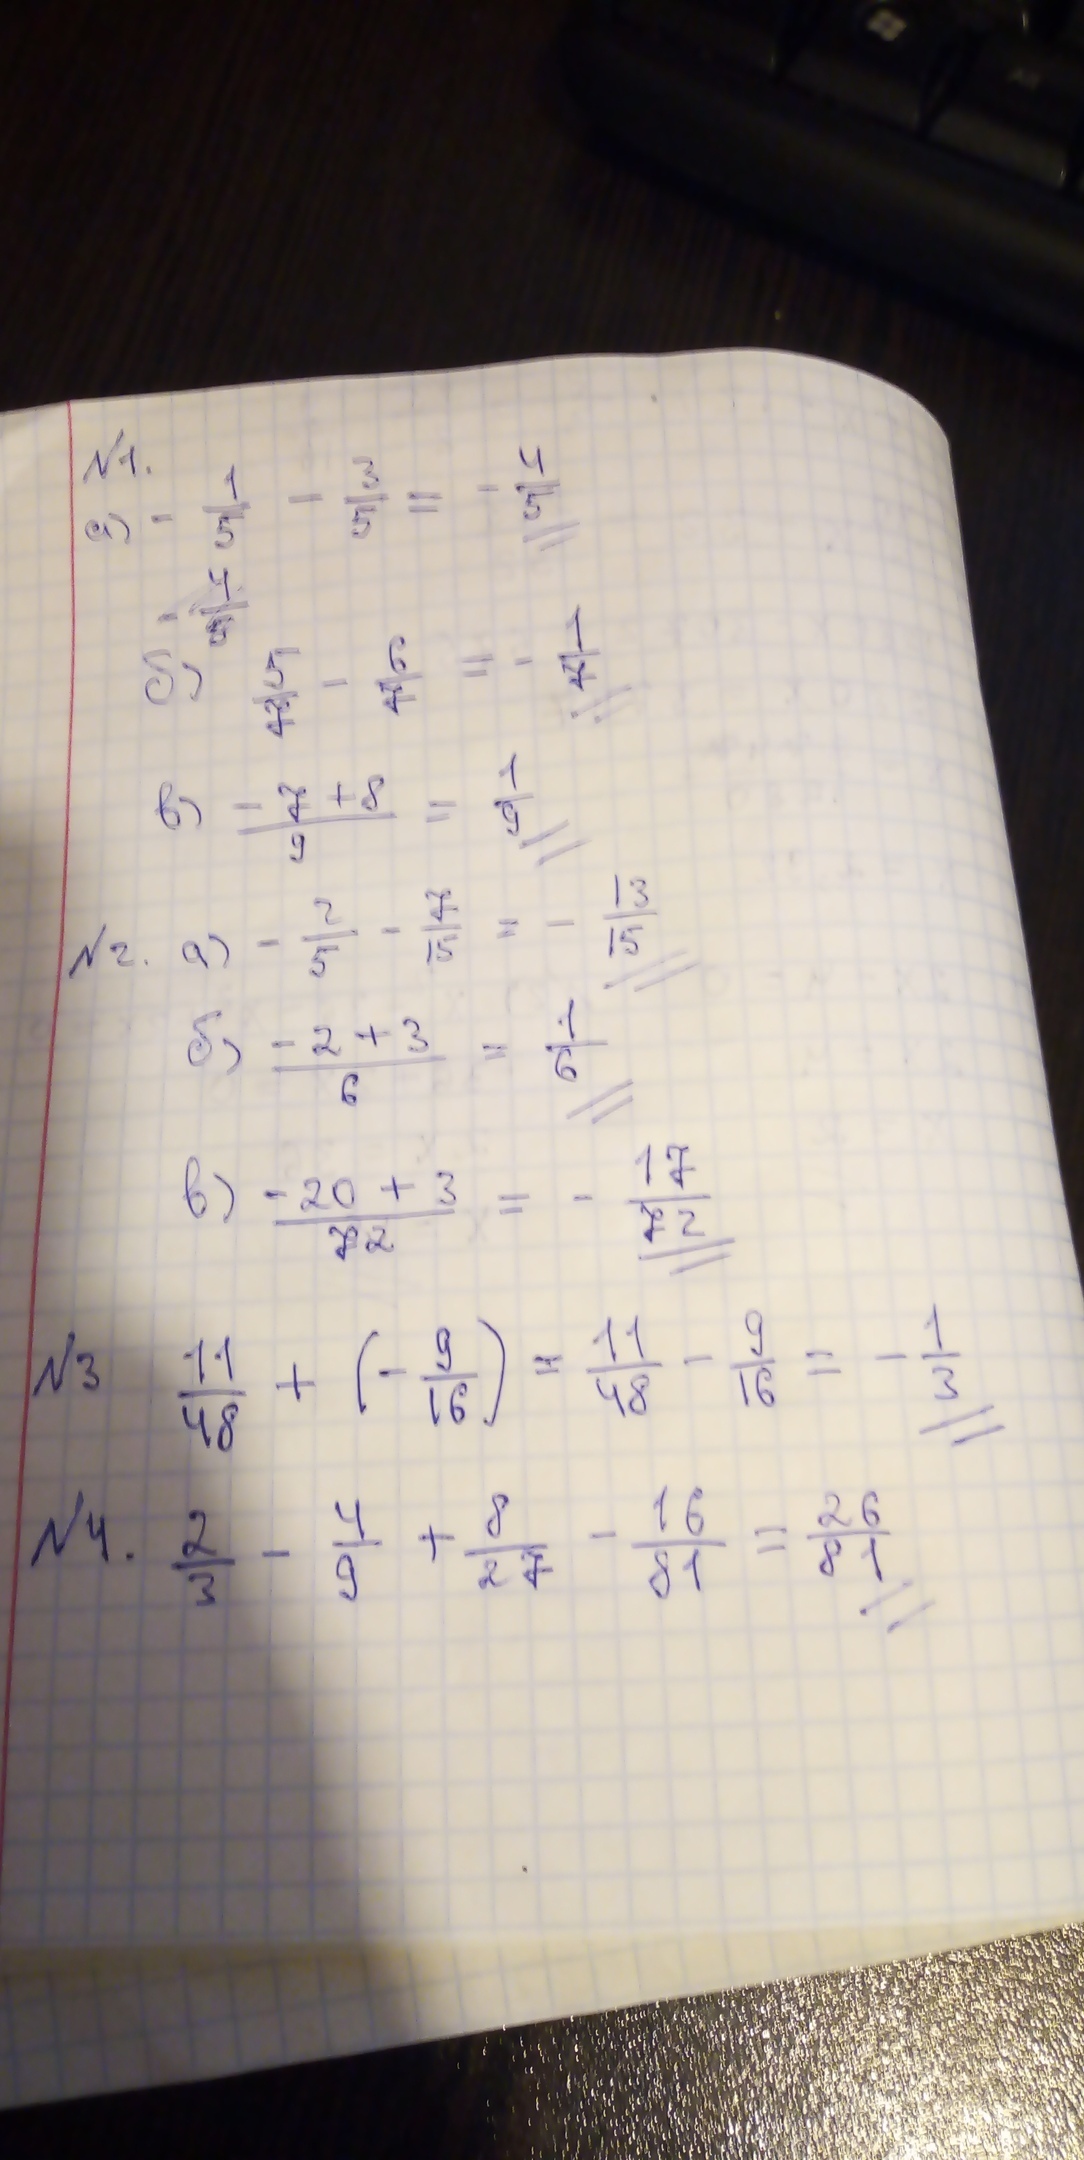 N1.
а) - 1/5 - 3/5 = - 4/5
- 4/5
б) 5/7 - 6/7 = - 1/7
в) (-7 + 8)/9 = 1/9
N2. а) - 2/5 - 7/15 = - 13/15
б) (-2 + 3)/6 = 1/6
в) (-20 + 3)/72 = - 17/72
N3 11/48 + (- 9/16) = 11/48 - 9/16 = - 1/3
N4. 2/3 - 4/9 + 8/27 - 16/81 = 26/81